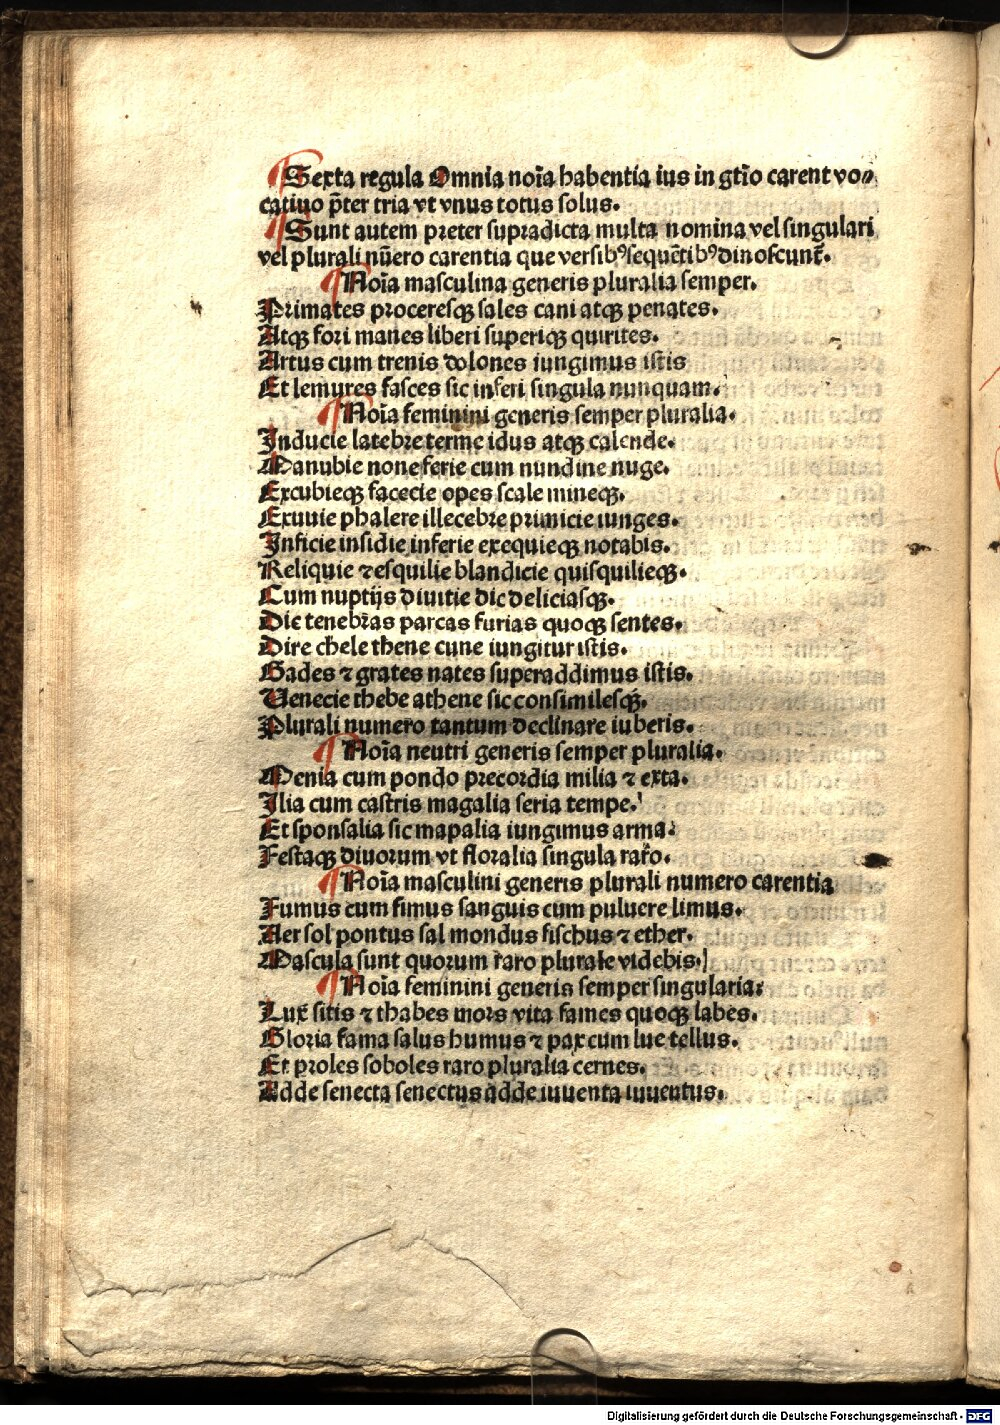 ¶ Sexta regula Omnia noīa habentia ius in gtīo carent vo⸗
catiuo p̄ter tria vt vnus totus solus.
¶ Sunt autem preter supradicta multa nomina vel singulari
vel plurali nūero carentia que versibꝰ sequētibꝰ dinoscunt᷑.
¶ Noīa masculina generis pluralia semper.
Primates proceresqꝫ sales cani atqꝫ penates.
Atqꝫ fori manes liberi superiqꝫ quirites.
Artus cum trenis dolones iungimus istis
Et lemures fasces sic inferi singula nunquam.
¶ Noīa feminini generis semper pluralia.
Inducie latebre terme idus atqꝫ calende.
Manubie none ferie cum nundine nuge.
Excubieqꝫ facecie opes scale mineqꝫ.
Exuuie phalere illecebre primicie iunges.
Inficie insidie inferie exequieqꝫ notabis.
Reliquie ⁊ esquilie blandicie quisquilieqꝫ.
Cum nuptijs diuitie dic deliciasqꝫ.
Dic tenebras parcas furias quoqꝫ sentes.
Dire chele thene cune iungitur istis.
Gades ⁊ grates nates superaddimus istis.
Venecie thebe athene sic consimilesqꝫ.
Plurali numero tantum declinare iuberis.
¶ Noīa neutri generis semper pluralia.
Menia cum pondo precordia milia ⁊ exta.
Ilia cum castris magalia seria tempe.
Et sponsalia sic mapalia iungimus arma:
Festaqꝫ diuorum vt floralia singula raro.
¶ Noīa masculini generis plurali numero carentia
Fumus cum fimus sanguis cum puluere limus.
Aer sol pontus sal mondus fischus ⁊ ether.
Mascula sunt quorum raro plurale videbis.
¶ Noīa feminini generis semper singularia:
Lux sitis ⁊ thabes mors vita fames quoqꝫ labes.
Gloria fama salus humus ⁊ pax cum lue tellus.
Et proles soboles raro pluralia cernes.
Adde senecta senectus adde iuuenta iuuentus.
Digitalisierung gefördert durch die Deutsche Forschungsgemeinschaft - DFG